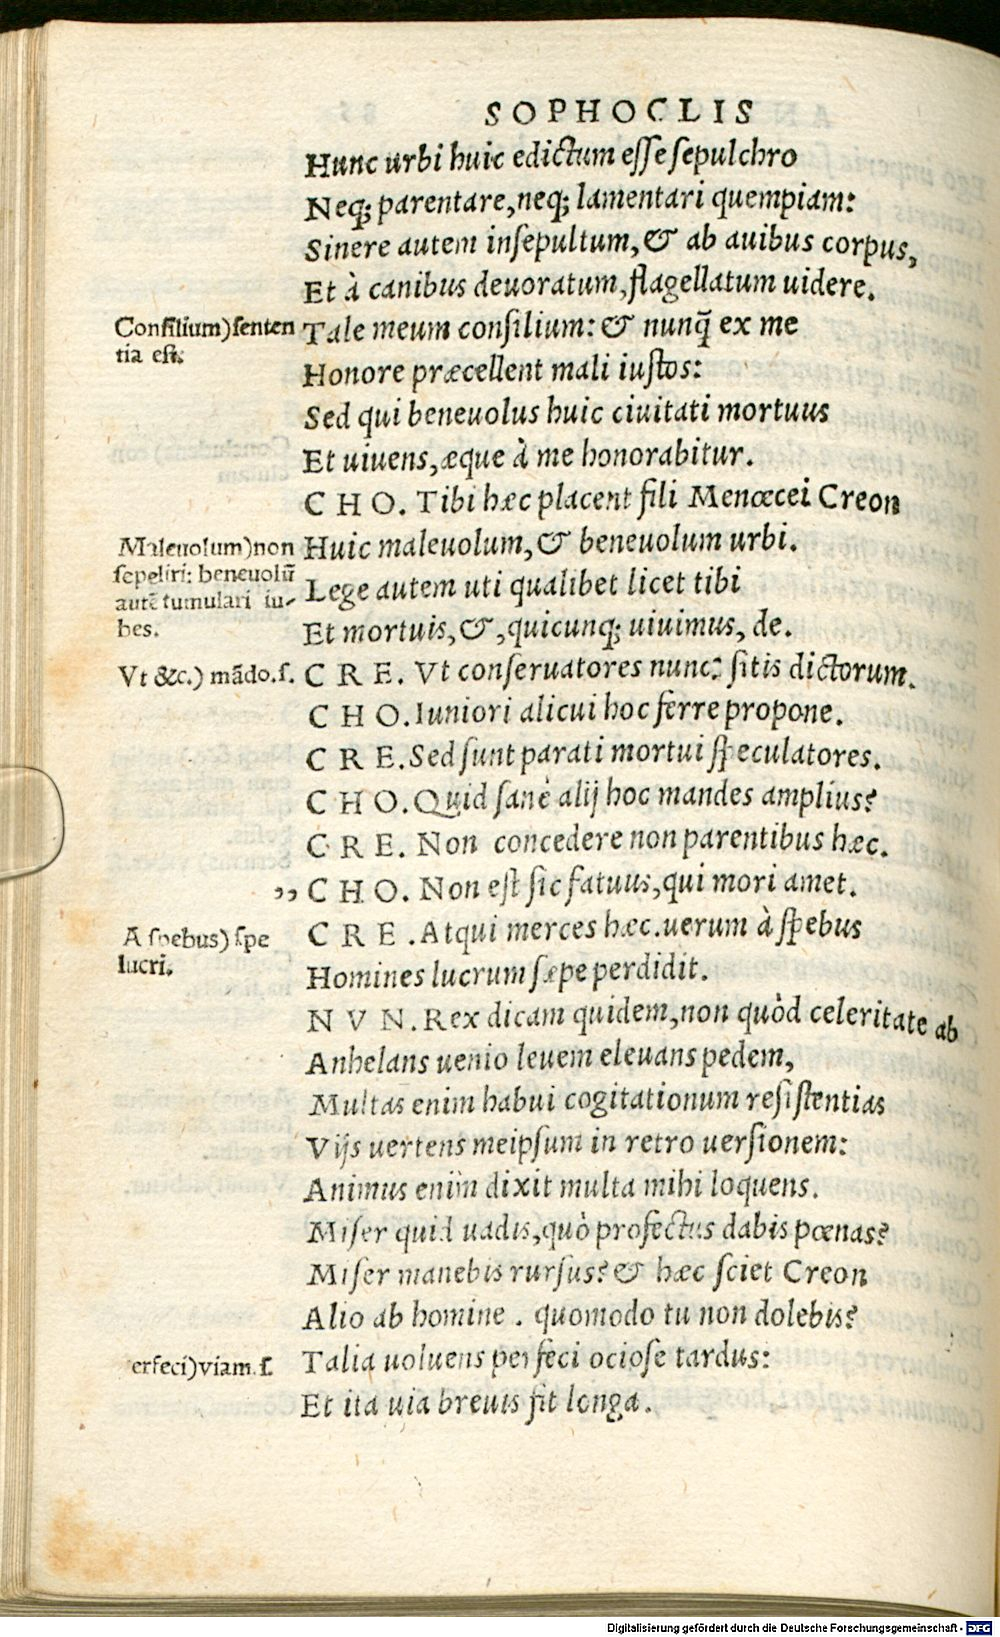 SOPHOCLIS
Hunc urbi huic edictum esse sepulchro
Neq; parentare, neq; lamentari quempiam:
Sinere autem insepultum, & ab auibus corpus,
Et à canibus deuoratum, flagellatum uidere.
Consilium) senten
tia est.
Tale meum consilium: & nunq̃ ex me
Honore præcellent mali iustos:
Sed qui beneuolus huic ciuitati mortuus
Et uiuens, æque à me honorabitur.
CHO. Tibi hæc placent fili Menœcei Creon
Maleuolum) non
sepeliri: beneuolũ
autẽ tumulari iu-
bes.
Huic maleuolum, & beneuolum urbi.
Lege autem uti qualibet licet tibi
Et mortuis, &, quicunq; uiuimus, de.
Vt &c.) mãdo. s.
CRE. Vt conseruatores nunc: sitis dictorum.
CHO. Iuniori alicui hoc ferre propone.
CRE. Sed sunt parati mortui speculatores.
CHO. Quid sanè alij hoc mandes amplius?
CRE. Non concedere non parentibus hæc.
,, CHO. Non est sic fatuus, qui mori amet.
A spebus) spe
lucri.
CRE. Atqui merces hæc. uerum à spebus
Homines lucrum sæpe perdidit.
NVN. Rex dicam quidem, non quòd celeritate ab
Anhelans uenio leuem eleuans pedem,
Multas enim habui cogitationum resistentias
Vijs uertens meipsum in retro uersionem:
Animus enim dixit multa mihi loquens.
Miser quid uadis, quò profectus dabis pœnas?
Miser manebis rursus? & hæc sciet Creon
Alio ab homine. quomodo tu non dolebis?
erfeci) viam. s.
Talia uoluens perfeci ociose tardus:
Et ita uia breuis fit longa.
Digitalisierung gefördert durch die Deutsche Forschungsgemeinschaft - DFG